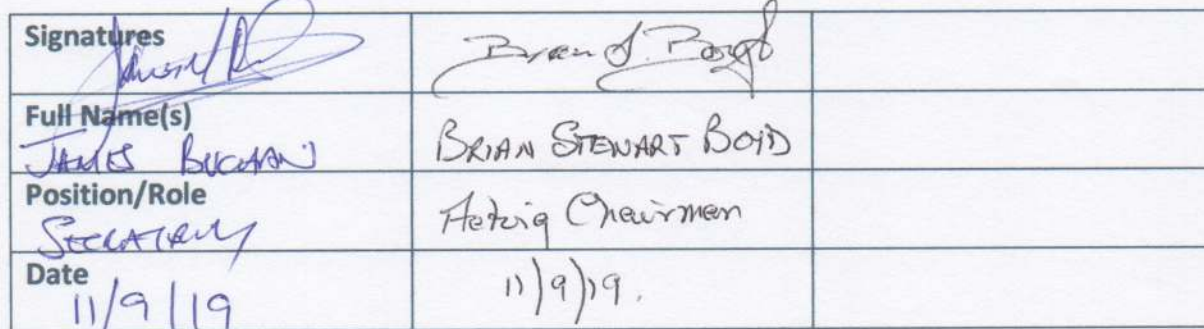 Signatures
Brian S. Boyd
Full Name(s)
JAMES BUCHAN
BRIAN STEWART BOYD
Position/Role
SECRETARY
Acting Chairman
Date
11/9/19
11/9/19.